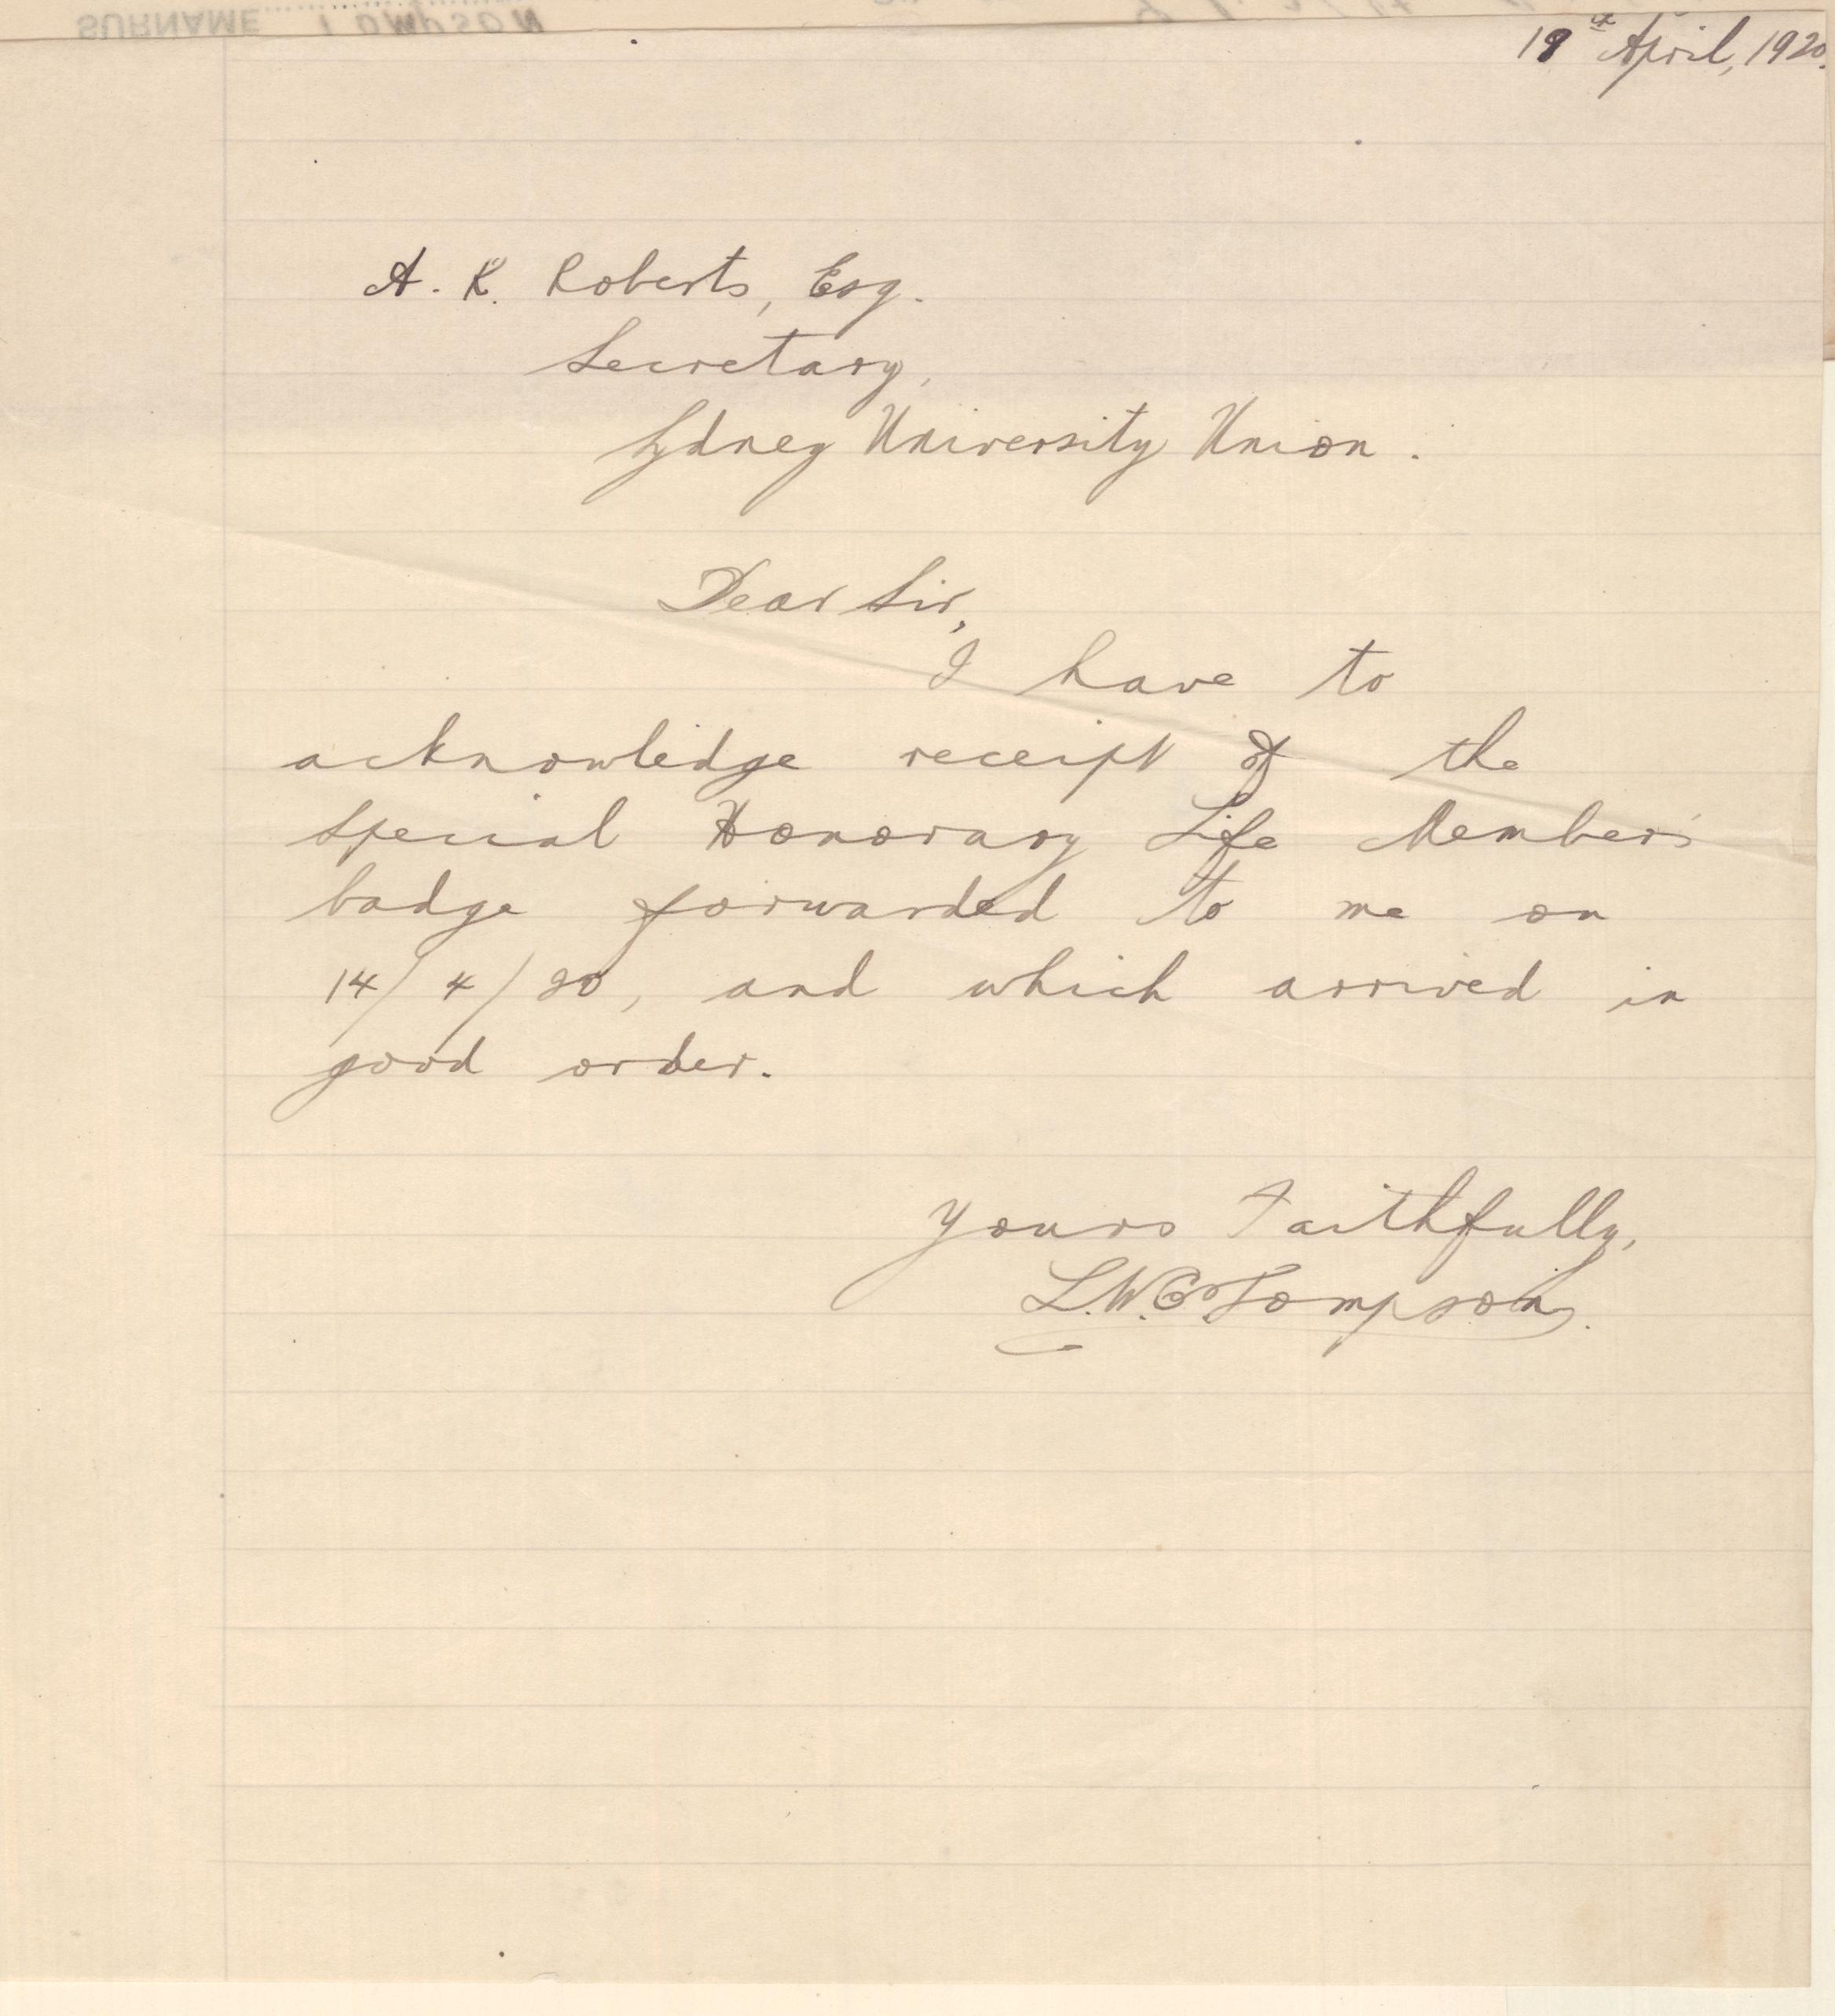 SURNAME Tompson
19th April, 1920.
A. R. Roberts, Esq.
Secretary,
Sydney University Union.
Dear Sir,
I have to
acknowledge receipt of the
special Honorary Life Member's
badge forwarded to me on
14/4/20, and which arrived in
good order.
Yours Faithfully,
L.W.G. Tompson.